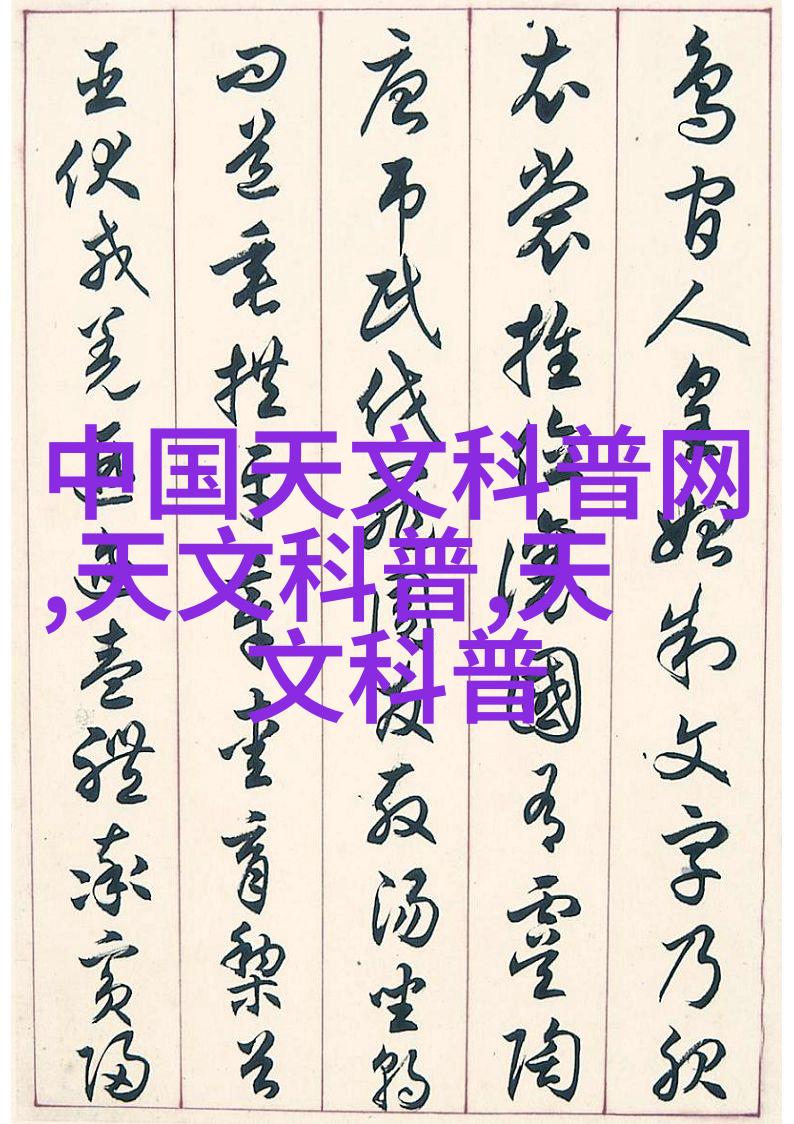 鳥官人皇始制文字乃服
衣裳推位讓國有虞陶
唐吊民伐罪周發殷湯坐朝
問道垂拱平章愛育黎首
臣伏戎羌遐邇壹體率賓歸
中国天文科普网
,天文科普,天
文科普